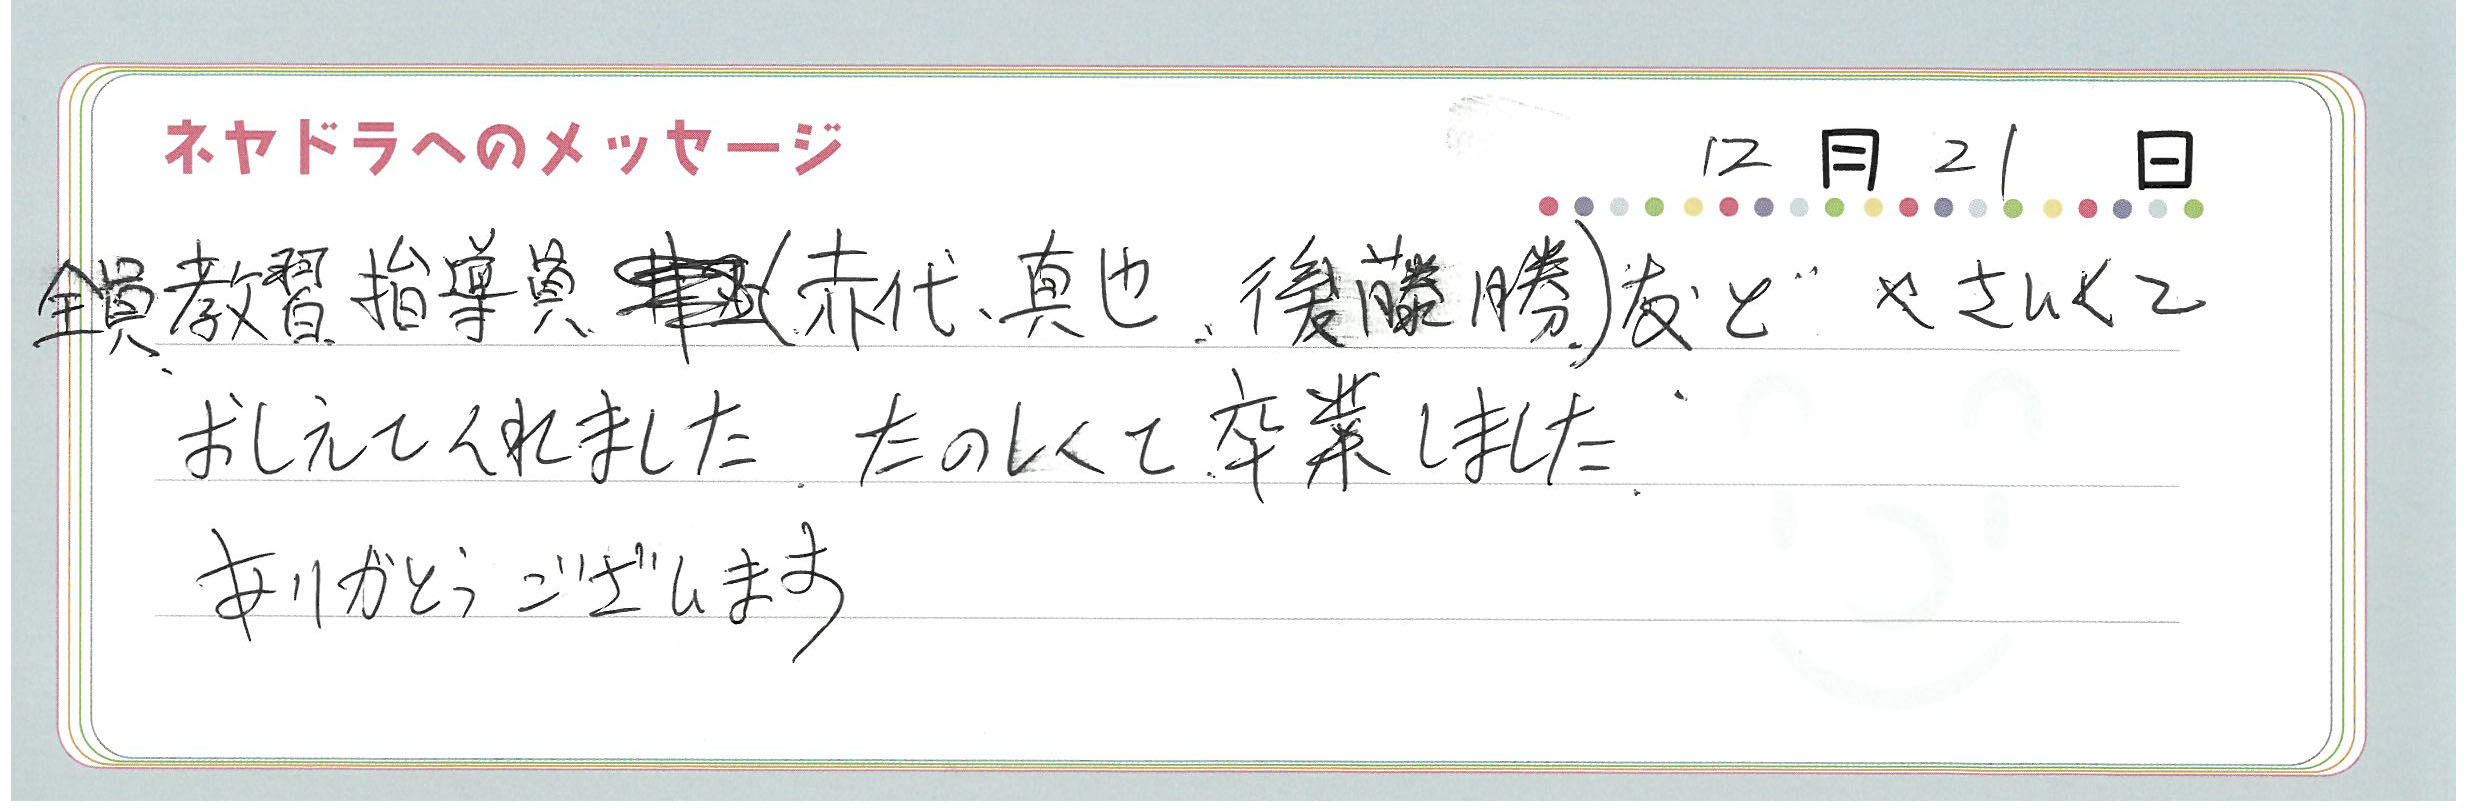 ネヤドラへのメッセージ
12月21日
全員教習指導員(赤代、真也、後藤勝)友ど やさしくて
おしえてくれました.たのしくて卒業しました.
ありがとうございます